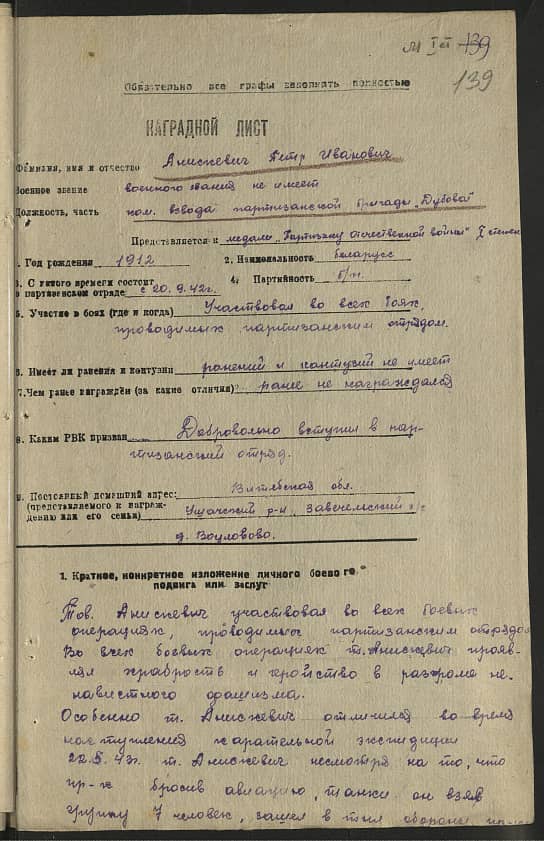 М I ст 139
139
Обязательно все графы заполнять полностью
НАГРАДНОЙ ЛИСТ
Фамилия, имя и отчество Анискевич Петр Иванович
Военное звание военного звания не имеет
Должность, часть ком. взвода партизанской бригады "Дубова"
Представляется к медали "Партизану отечественной войны" I степен
1. Год рождения 1912 2. Национальность беларусс
3. С какого времени состоит 4. Партийность б/п.
в партизанском отряде с 20.9.42г.
5. Участие в боях (где и когда) Участвовал во всех боях,
проводимых партизанским отрядом.
6. Имеет ли ранения и контузии ранений и контузий не имеет
7. Чем ранее награжден (за какие отличия) ранее не награждался
8. Каким РВК призван Добровольно вступил в пар-
тизанский отряд.
9. Постоянный домашний адрес: Витебская обл.
(представляемого к награж- Ушачский р-н, Завечельский с/с
дению или его семьи)
д.
1. Краткое, конкретное изложение личного боевого
подвига или заслуг
Тов. Анискевич участвовал во всех боевых
операциях, проводимых партизанским отрядо
Во всех боевых операциях т. Анискевич прояв-
лял храбрость и геройство в разгроме не-
навистного фашизма.
Особенно т. Анискевич отличился во время
наступления карательной экспидиции
22.5.43г. т. Анискевич несмотря на то, что
пр-к бросив авиацию, танки он взяв
группу 7 человек, зашел в тыл обороны